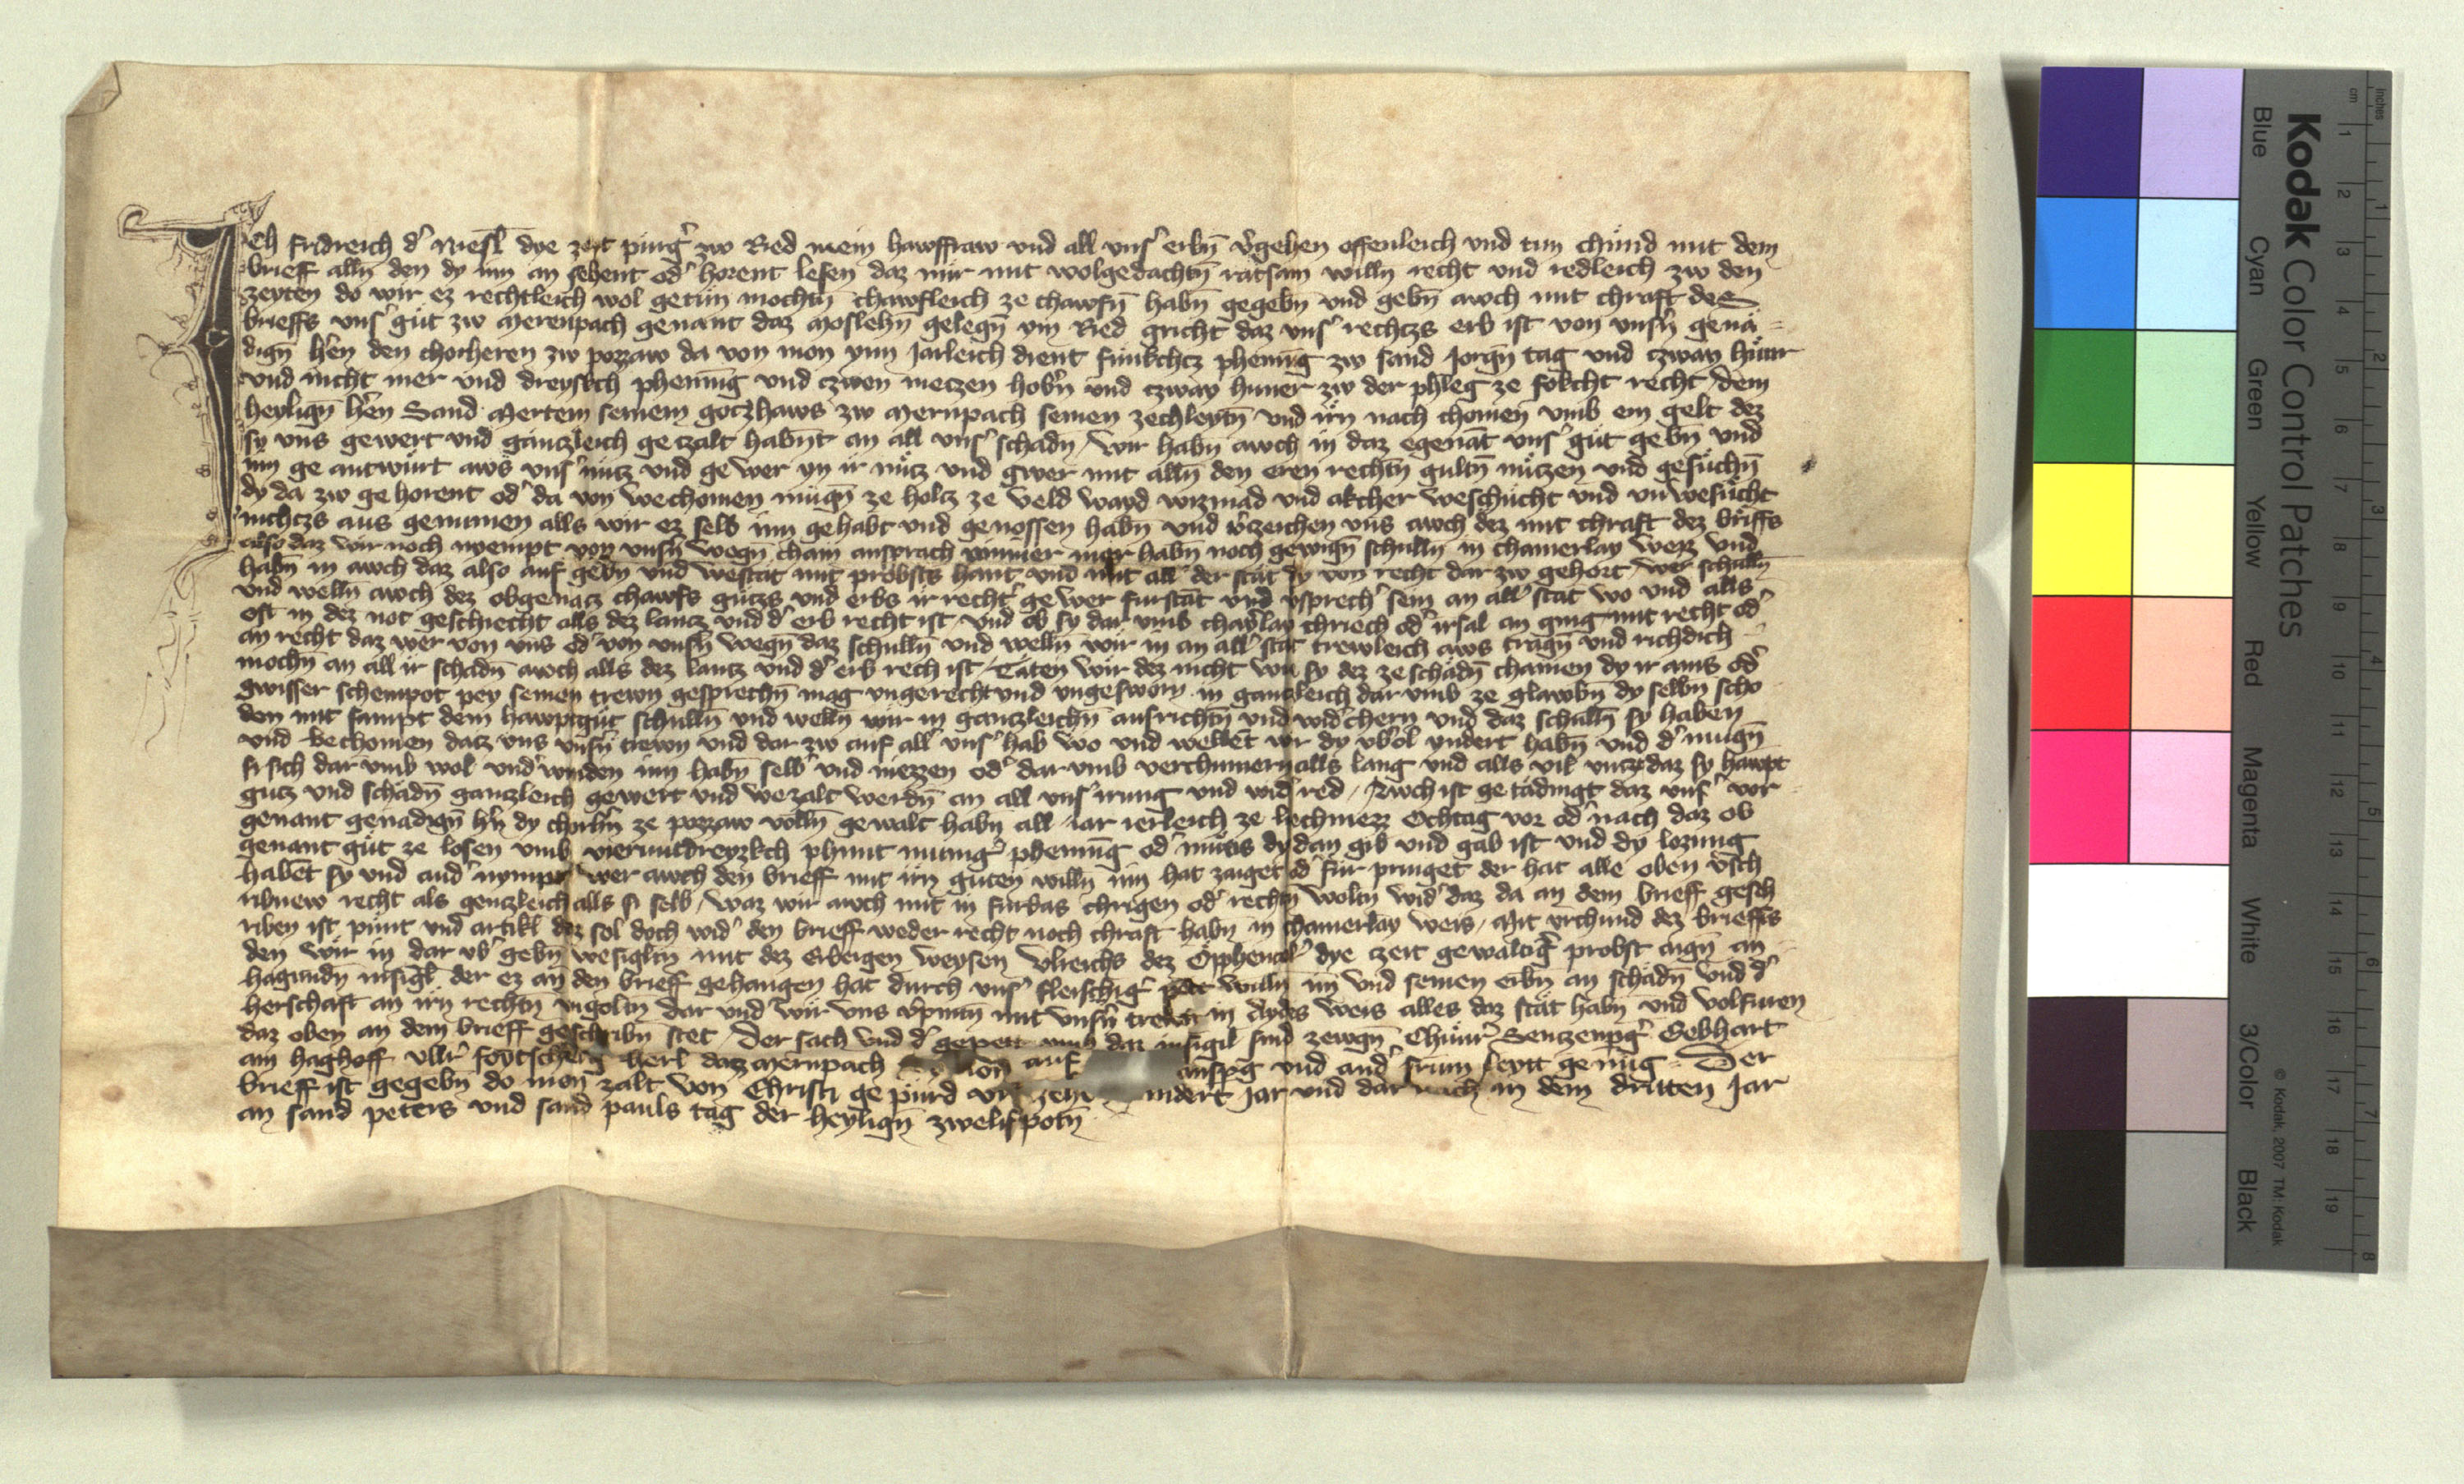 Ich fridreich dˀ Niesl dye zeit pürgˀ zw Ried mein hawsfraw und all unsˀ erbn̄ vˀgehen offenleich und tun chund mit dem
brieff alln̄ den dy inn an sehent odˀ horent lesen daz mir mit wolgedachtn̄ ratsam willn̄ recht und redleich zw den
zeyten do wir ez rechtleich wol getun mochtn̄ chawfleich ze chawfn̄ habn̄ gegebn̄ und gebn̄ awch mit chraft des
brieffs unsˀ güt zw Merenpach genant daz Moslehn̄ gelegn̄ ym Ried gricht daz unsˀ rechtzs erb ist von unsˀn̄ genä
dign̄ hˀen den chorheren zw pazzaw da von mon ynn Jarleich dient funkchcz phennig zw sand Jorgn̄ tag und czway hüner
und nicht mer und dreyskch phennig und czwen meczen hobˀn und czway huner zw der phleg ze fokcht recht dem
heylign̄ hˀen Sand Mertem seinem goczhaws zw Mernpach seinen zechleytn̄ und irn nach chomen umb ein gelt dez
sy uns gewert und gänczleich geczalt habn̄t an all unsˀ schadn̄ / wir habn̄ awch in daz egenāt unsˀ güt gebn̄ und
inn ge antwürt aws unsˀ nücz und ge wer yn ir nücz und gwer mit alln̄ den eren rechtn̄ gultn̄ nüczen und gesüchn̄
dy da zw ge horent odˀ da von wechomen mügn̄ ze holcz ze veld wayd wizmad und akcher weschücht und unwesücht
nichtzs aus genumen alls wir ez selb inn gehabt und genossen habn̄ und vˀzeichen uns awch dez mit chraft dez briffs
also daz wir noch nyempt von unsˀn̄ wegn̄ cham ansprach nimmer mer habn̄ noch gewign̄ schulln̄ in chamerlay weis und
habn̄ in awch daz also auf gebn̄ und westät mit probsts hant und mit allˀ der stät dy von recht dar zw gehort / wer schulln̄
und welln̄ awch dez obgenācz chawfs gutzs und erbs ir recht ge wer furstāt und vˀsprechˀ sein an allˀ stat wo und alls
oft in dez not geschiecht alls dez lancz und dˀ erb recht ist und ob sy dar umb chayˀlay chriech odˀ irsal an ging mit recht odˀ
an recht daz wer von uns odˀ von unsˀn̄ wegn̄ daz schulln̄ und welln̄ wir in an allˀ stat trewleich aws tragn̄ und richdich
mochn̄ an all ir schadn̄ awch alls dez lantz und dˀ erb rech ist / Täten wir dez nicht wu sy dez ze schadn̄ chamen dy ir ains odˀ
gwisser schempot pey seinen trewn gesprechn̄ mag ungerecht und ungesworn in ganczleich dar umb ze glawbn̄ dy selbn̄ scho
den mit sampt dem hawptgüt schulln̄ und welln̄ wir in ganczleichn̄ ausrichtn̄ und widˀchern und daz schulln̄ sy haben
und bechomen dacz uns unsˀn̄ trewn und dar zw auf allˀ unsˀ hab wo und wellēt wir dy ubˀol yndert habn̄ und dˀ mugn̄
si sich dar umb wol undˀwinden inn habn̄ selbˀ und niezzen odˀ dar umb verchumern alls lang und alls vil uncz daz sy hawpt
gutz und schadn̄ ganczleich gewert und wezalt werdn̄ an all unsˀ irrung und widˀred / Awch ist ge tädingt daz unsˀ vor
genant genadign̄ hˀn̄ dy chorhˀn̄ ze pazzaw volln̄ gewalt habn̄ all iar ierleich ze liechmezz Ochtag vor odˀ nach daz ob
genant güt ze losen umb vierunddreyzkch phunt minigˀ phennīg odˀ mütis dy dan gib und gab ist und dy lozung
habēt sy und andˀ nympt wer awch den brieff mit irn guten willn̄ inn hat zaiget odˀ für pringet der hat alle oben vˀsch
ribnew recht als genczleich alls si selb / waz wir awch mit in furbas chrigen odˀ rechtn̄ woltn̄ widˀ daz da an dem brieff gesch
riben ist pünt und artikl daz sol doch widˀ den brieff weder recht noch chraft habn̄ in chamerlay weis / Mit urchund dez brieffs
den wir in dar ubˀ gebn̄ wesigltn̄ mit dez Erbergen weysen Ulreichs dez Öpphenclˀ dye czeit gewaltigˀ probst aign̄ an
hagundn̄ insigl der ez an den brieff gehangen hat durch unsˀ fleischigˀ pet willn̄ im und seinen erbn̄ an schadn̄ und dˀ
herschaft an irn rechtn̄ ingoltn̄ dar und wir uns vˀpintn̄ mit unsˀn̄ trewn in Aydes weis alles daz stät habn̄ und volfuren
daz oben an dem brieff geschribn̄ stet / Der sach und dˀ gepett umb daz insigil sind zewgn̄ Chünrˀ Senczenpgˀ Gebhart
am haghoff Ullrˀ herl dacz Mernpach auf und andˀ frum leytt genug Der
brieff ist gegebn̄ do mon zalt von Christi ge pürd vir zehn ndert Jar und dar nach in dem dritten Jar
an sand peters und sand pauls tag der heylign̄ zwelifpotn̄
Kodak Color Control Patches
Blue Cyan Green Yellow Red Magenta White 3/Color Black
© Kodak, 2007 TM: Kodak
inches 1 2 3 4 5 6 7 8
cm 1 2 3 4 5 6 7 8 9 10 11 12 13 14 15 16 17 18 19